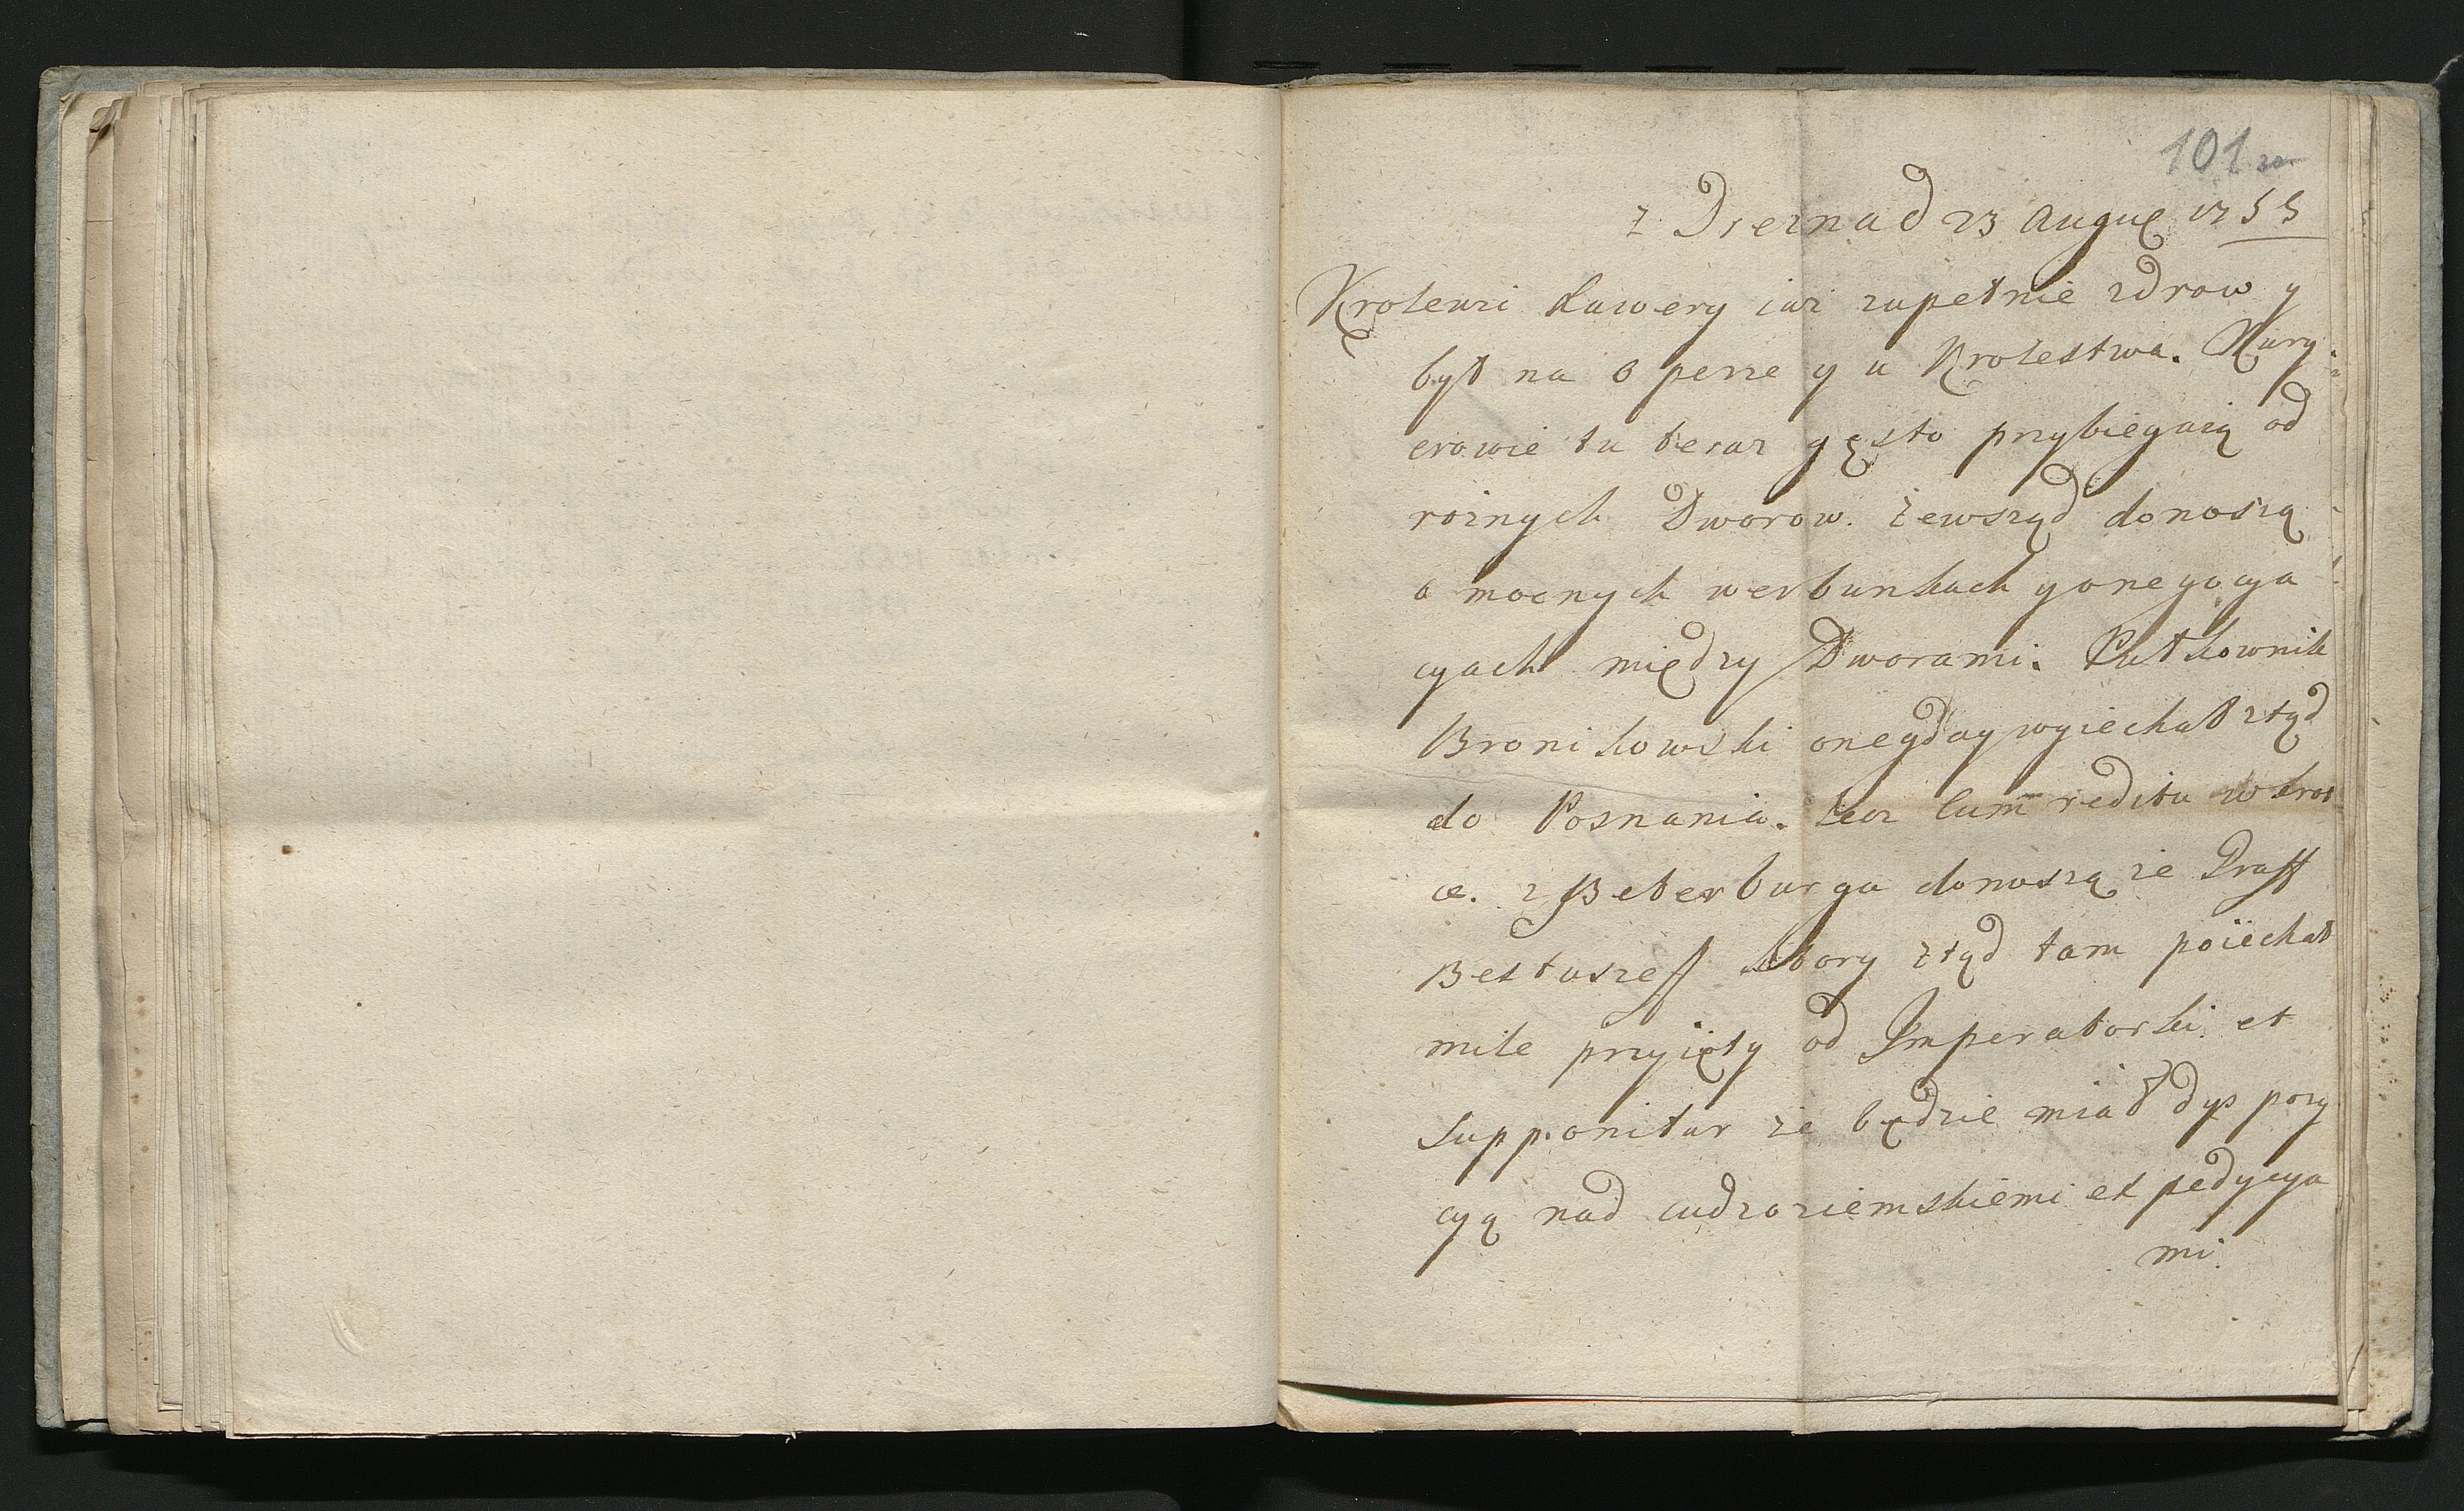 101
z Drezna d 23 Augus 1755
Krolewi Xawery iuż zupełnie zdrow y
był na Operze y u Krolestwa. Kury
erowie tu teraz gęsto przybiegaią od
rożnych Dworow. Zewsząd donoszą
o mocnych werbunkach y o negocya
cyach między Dworami. Pułkownik
Bronikowski onegday wyiechał ztąd
do Poznania. lecz cum reditu wkrot
ce. z Peterburga donoszą że Graff
Bestuszeff ktory ztąd tam poiechał
mile przyięty od Imperatorki. et
supponitur że będzie miał dyspozy
cyą nad cudzoziemskiemi expedycya
mi.